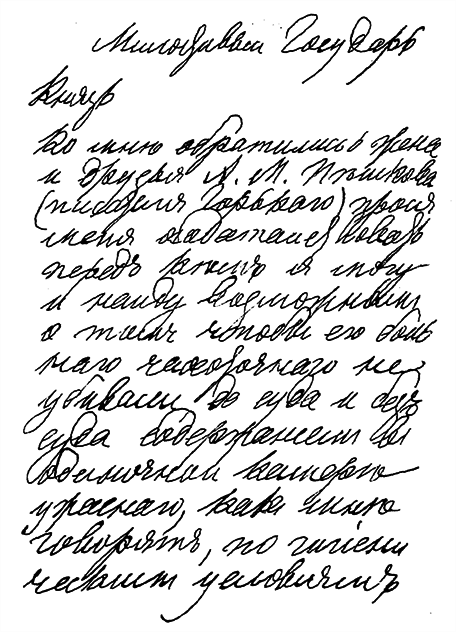 Милостивый Государь
Князь
Ко мнѣ обратились жена
и друзья А. М. Пѣшкова
(писателя Горькаго) прося
меня
передъ кѣмъ я могу
и найду возможнымъ
о томъ чтобы его боль
наго чахоточнаго не
убивали до суда и безъ
суда содержаніемъ въ
одиночной камерѣ
какъ мнѣ
говорятъ, по гигіени
ческимъ условіямъ